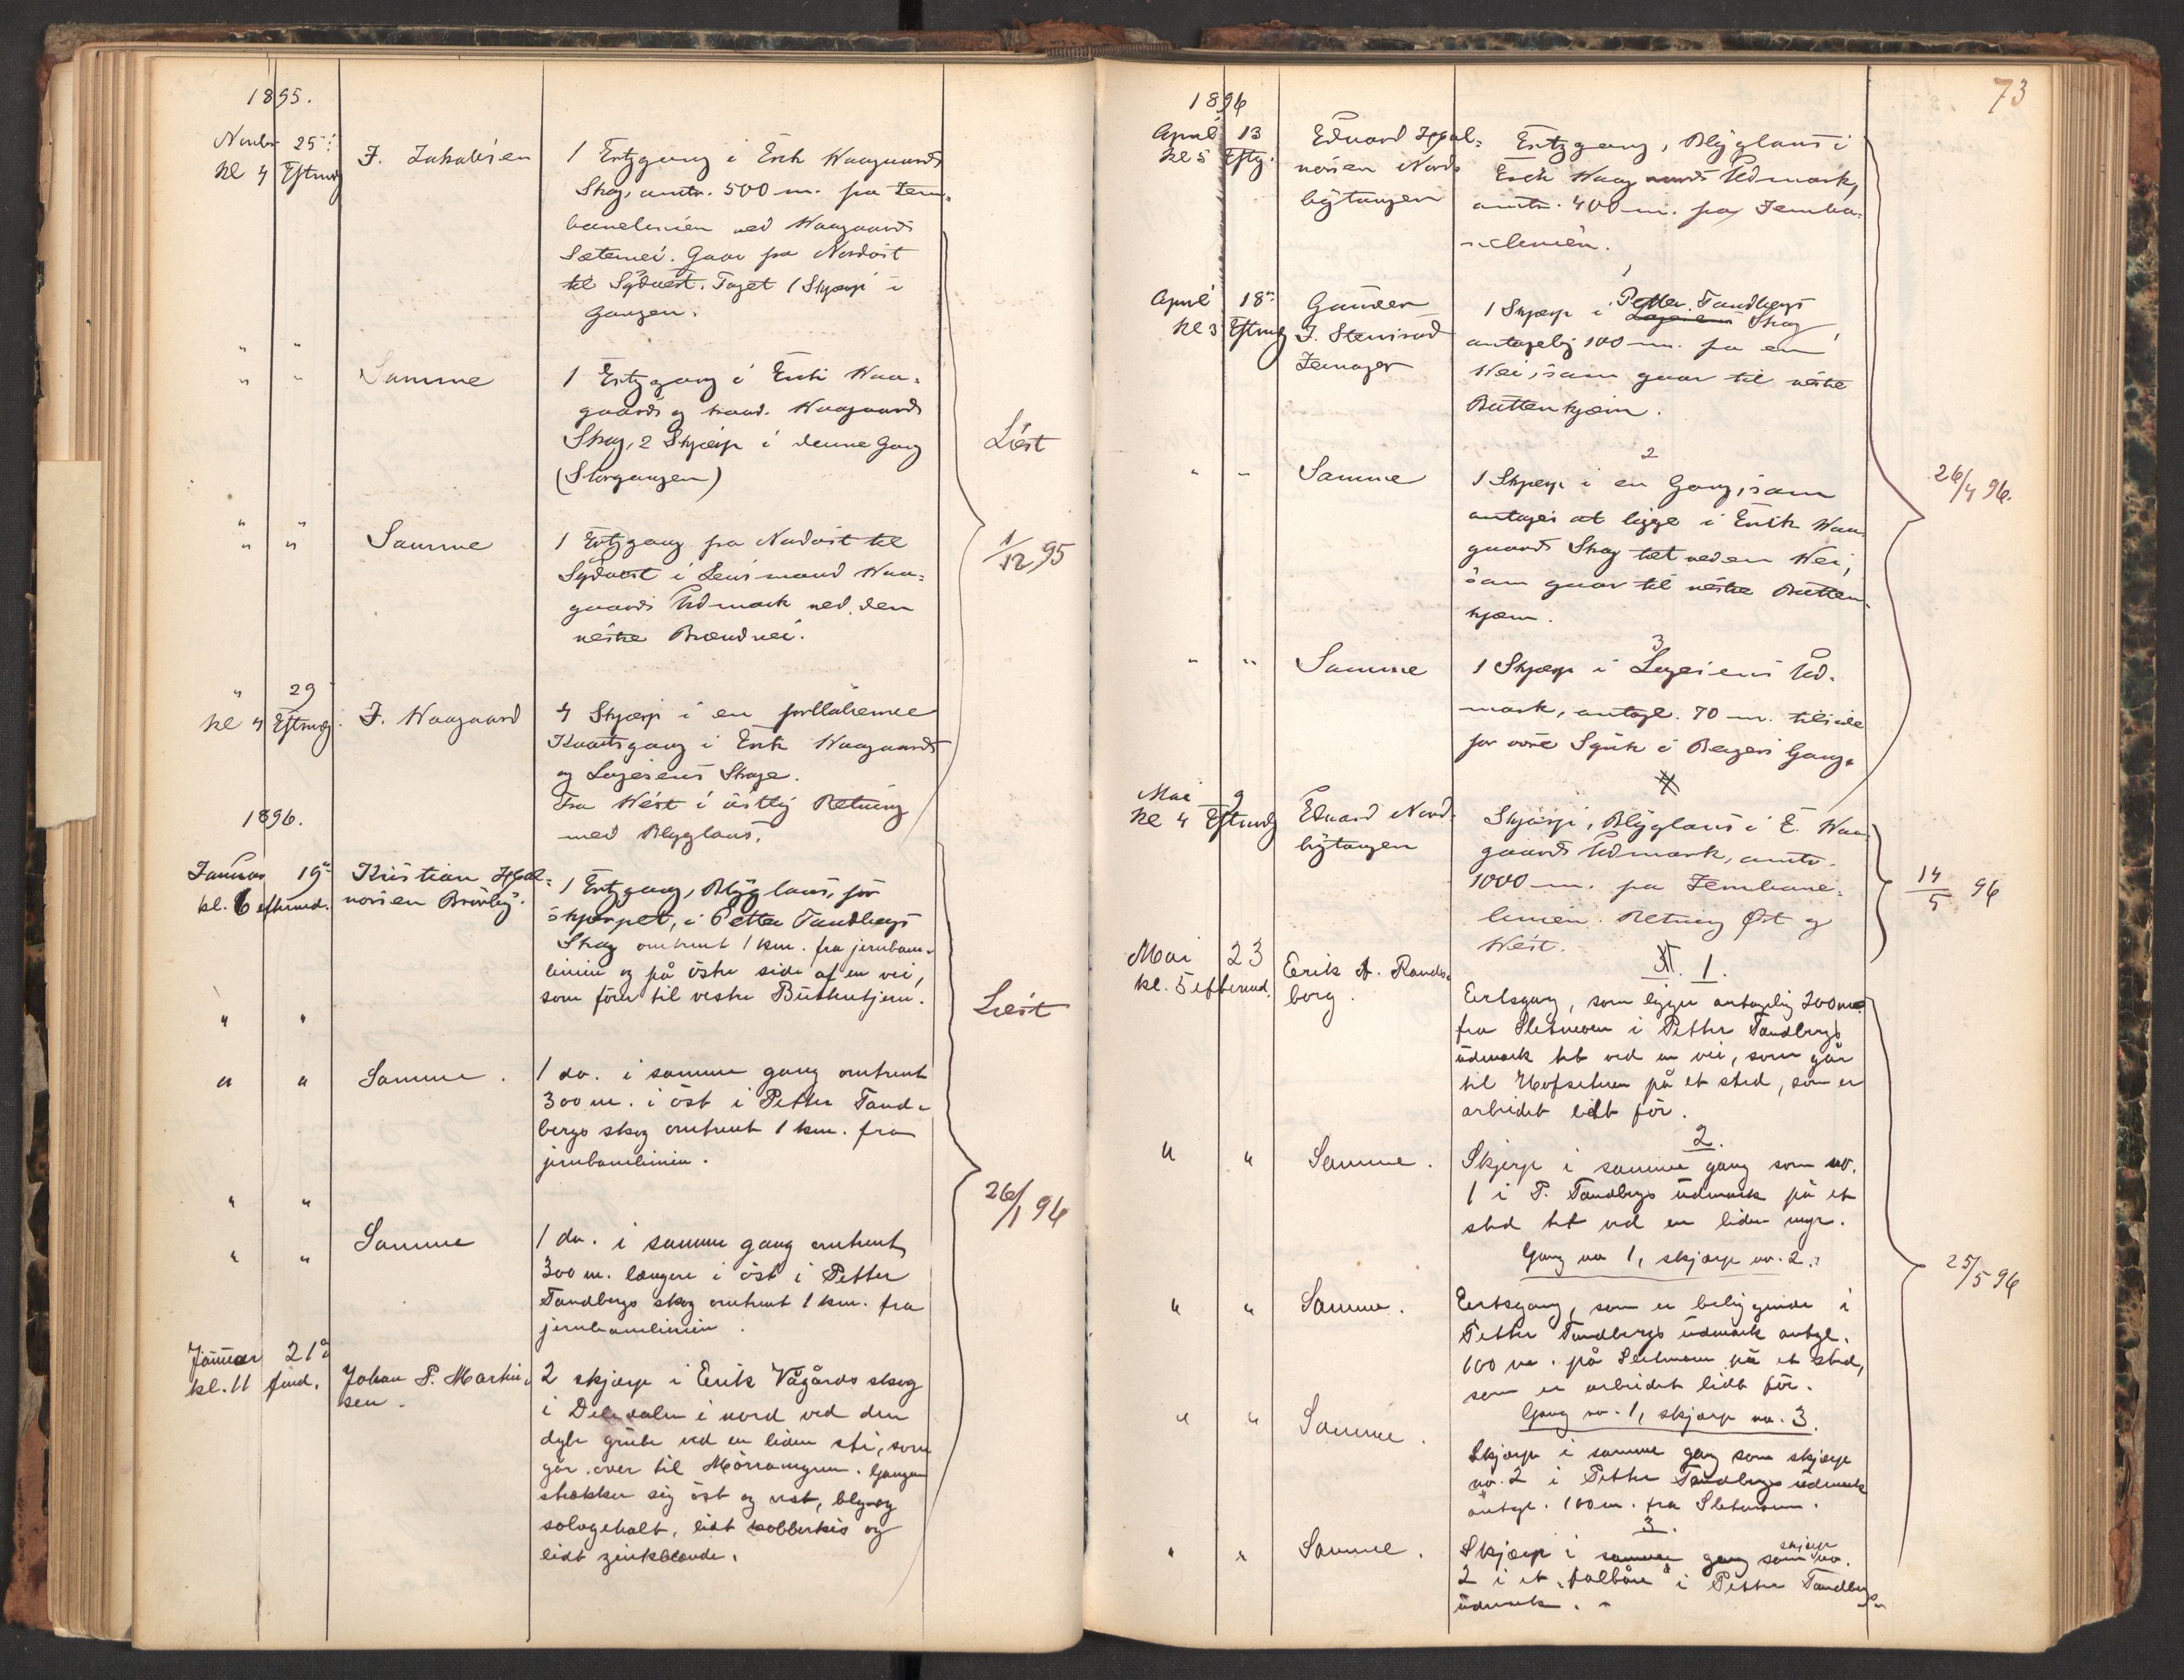 1895.
Novbr 25.
kl 4 Eftmdg
J. Jakobsen
1 Ertzgang i Erik Waagaards
Skog, omtr. 500 m. fra Jern-
banelinien ved Waagaards
Sætervei. Gaar fra Nordöst
til Sydvest. Taget 1 Skjærp i
Gangen.
" "
" "
Samme
1 Ertzgang i Erik Waa-
gaards og Waagaards
Skog, 2 Skjærp i denne Gang
(Storgangen)
Læst
" "
" "
Samme
1 Ertzgang fra Nordöst til
Sydvest i Lensmand Waa-
gaards Udmark ved den
vestre Brændvei.
1/12 95
" 29
kl 4 Eftmdg.
J. Waagaard
4 Skjærp i en
Kvartsgang i Erik Waagaards
og Lagesens Skoge.
Fra Vest i östlig Retning
med Blyglans.
1896.
Januar 19de
kl. 6 eftermd.
Kristian Hjal-
Brörby.
1 Ertzgang, Blyglans, för
skjærpet, i Petter Tandbergs
Skog omtrent 1 km. fra jernbane-
linien og på östre side af en vei,
som förer til vestre Buttentjern.
" "
Læst
" "
Samme.
1 do. i samme gang omtrent
300 m. i öst i Petter Tand-
bergs skog omtrent 1 km. fra
jernbanelinien.
" "
26/1 96
" "
Samme
1 do. i samme gang omtrent
300 m. længere i öst i Petter
Tandbergs skog omtrent 1 km. fra
jernbanelinien.
Januar 21de
kl. 11 fmd.
Johan P. Martin-
sen.
2 skjærp i Erik Vågårds skog
i nord ved den
dybe grube ved en liden sti, som
går over til Mörramyren. Gangen
strækker sig öst og vest, bly og
sölvgehalt, lidt kobberkis og
lidt zinkblende.
73
1896
April 13
kl 5 Eftg.
Edvard Hjal-
Nord-
bytangen
Ertzgang, Blyglans i
Erik Waagaards Udmark,
omtr. 400 m. fra Jernba-
nelinien.
April 18de
kl 3 Eftmdg
Gunder
J. Stensrud
Jevnager
1
1 Skjærp i Petter Tandbergs
Skog,
antagelig 100 m. fra en
Vei, som gaar til vestre
Buttenkjærn.
" "
Samme
2
1 Skjærp i en Gang, som
antages at ligge i Erik Waa-
gaards Skog tæt ved en Vei,
som gaar til vestre Butten-
kjærn.
26/4 96.
" "
Samme
3
1 Skjærp i Lagesens Ud-
mark, antagl. 70 m. tilside
for övre Synk i Bergers Gang.
Mai 9
kl 4 Eftmdg
Edvard Nord-
bytangen
Skjærp, Blyglans i E. Waa-
gaards Udmark, omtr.
1000 m. fra Jernbane-
linien. Retning Öst og
Vest.
14/5 96
Mai 23
kl. 5 eftermd.
Erik A. Rands-
borg.
N. 1.
Ertsgang, som ligger antagelig 200 m
fra Sletmoen i Petter Tandbergs
udmark tet ved en vei, som går
til Hofseteren på et sted, som er
arbeidet lidt för.
" "
Samme.
2.
Skjerp i samme gang som no.
1 i P. Tandbergs udmark på et
sted tet ved en liden myr.
Gang no 1, skjærp no. 2.
" "
Samme.
Ertsgang, som er beliggende i
Petter Tandbergs udmark antgl.
100 m. på Sletmoen på et sted,
som er arbeidet lidt för.
25/5 96
Gang no. 1, skjærp no. 3.
" "
Samme.
Skjærp i samme gang som skjærp
no. 2 i Petter Tandbergs udmark
antgl. 100 m. fra Sletmoen.
3.
" "
Samme.
Skjærp i samme gang som skjærp no.
2 i et i Petter Tandbergs
udmark.